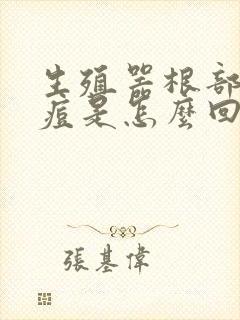 生殖器根部
痘是怎麼回
張基偉